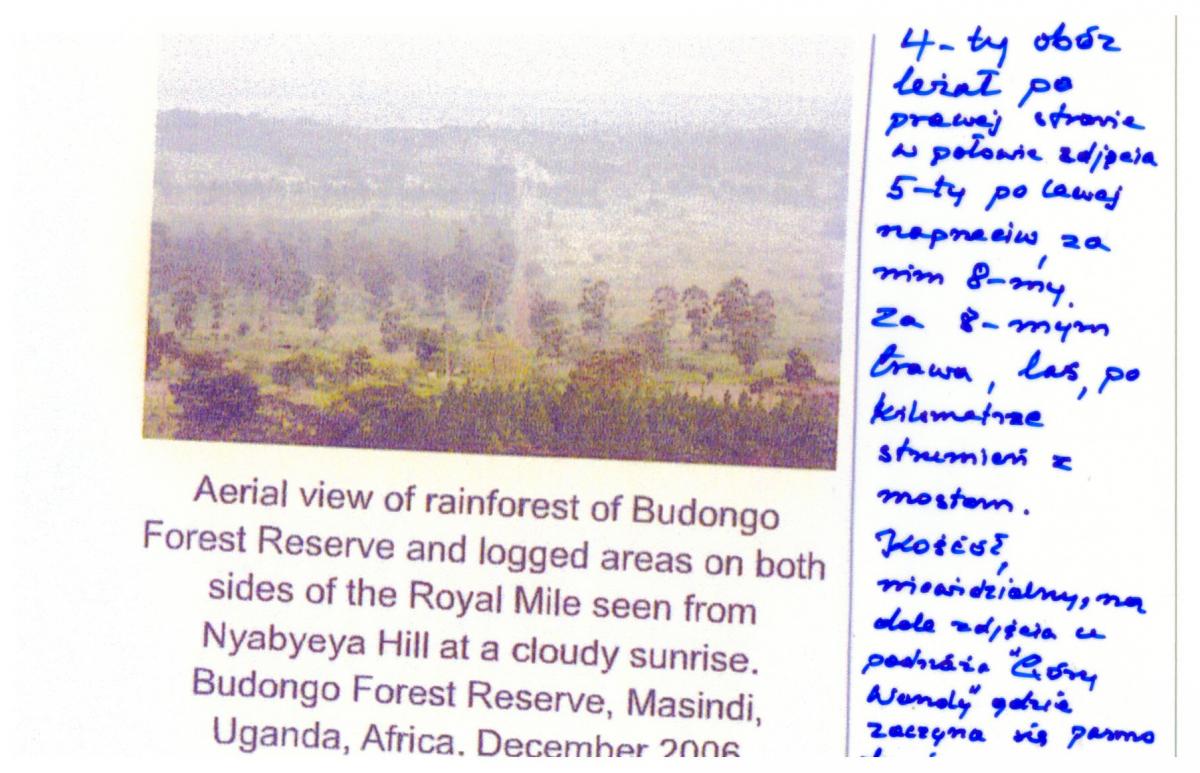 Aerial view of rainforest of Budongo
Forest Reserve and logged areas on both
sides of the Royal Mile seen from
Nyabyeya Hill at a cloudy sunrise.
Budongo Forest Reserve, Masindi,
Uganda, Africa. December 2006
4-ty obóz
leżał po
prawej stronie
w połowie zdjęcia
5-ty po lewej
naprzeciw, za
nim 8-my.
Za 8-mym
trawa, las, po
kilometrze
strumień z
mostem.
Kościół,
niewidzialny, na
dole zdjęcia u
podnóża "Góry
Wandy" gdzie
zaczyna się pasmo